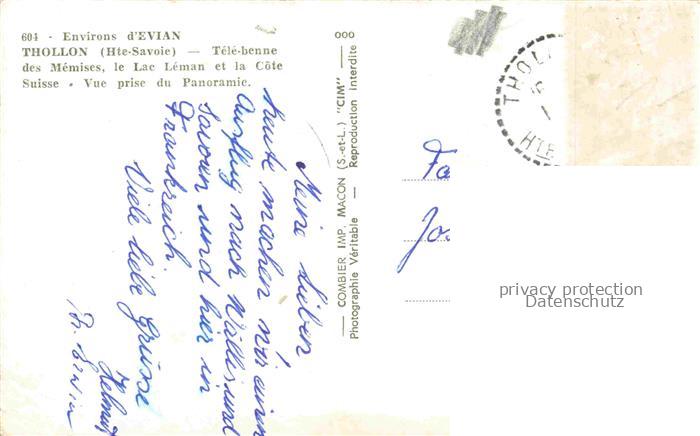 604 - Environs d'EVIAN
THOLLON (Hte-Savoie) — Télé-benne
des Mémises, le Lac Léman et la Côte
Suisse - Vue prise du Panoramic.
ooo
COMBIER IMP. MACON (S.-et-L.) "CIM"
Photographie Véritable — Reproduction Interdite
Meine Lieben,
heute machen wir einen
Ausflug nach Wallis und
Savoien und hier in
Frankreich.
Viele liebe Grüsse
Helmut
THOLL
HTE
privacy protection
Datenschutz